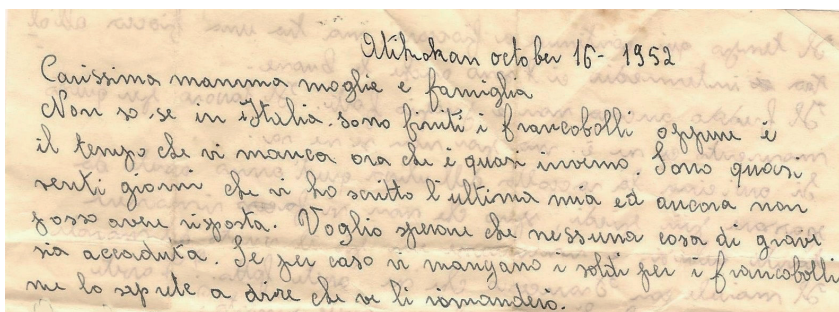 Atikokan october 16 - 1952
Carissima mamma moglie e famiglia
Non so se in Italia sono finiti i francobolli oppure è
il tempo che vi manca ora che è quasi inverno. Sono quasi
venti giorni che vi ho scritto l'ultima mia ed ancora non
posso avere risposta. Voglio sperare che nessuna cosa di grave
sia accaduta. Se per caso vi mangano i soldi per i francobolli
me lo sepute a dire che ve li